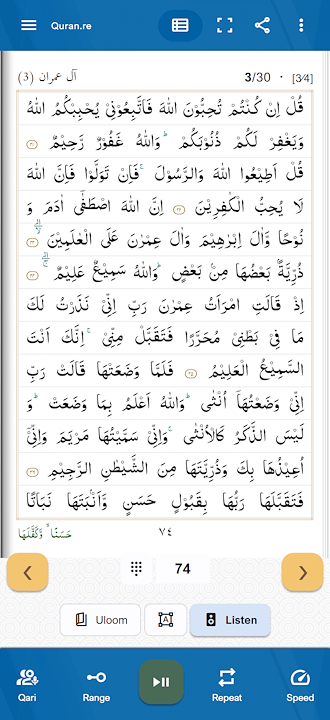 Quran.re
آل عمران (3)
3/30 • [3⁄4]
قُلْ اِنْ كُنْتُمْ تُحِبُّوْنَ اللّٰهَ فَاتَّبِعُوْنِيْ يُحْبِبْكُمُ اللّٰهُ
وَيَغْفِرْ لَكُمْ ذُنُوْبَكُمْ ؕ وَاللّٰهُ غَفُوْرٌ رَّحِيْمٌ ﴿٣١﴾
قُلْ اَطِيْعُوا اللّٰهَ وَالرَّسُوْلَ ۚ فَاِنْ تَوَلَّوْا فَاِنَّ اللّٰهَ
لَا يُحِبُّ الْكٰفِرِيْنَ ﴿٣٢﴾ اِنَّ اللّٰهَ اصْطَفٰٓى اٰدَمَ وَ
نُوْحًا وَّاٰلَ اِبْرٰهِيْمَ وَاٰلَ عِمْرٰنَ عَلَى الْعٰلَمِيْنَ ﴿٣٣﴾
ذُرِّيَّةًۢ بَعْضُهَا مِنْۢ بَعْضٍ ؕ وَاللّٰهُ سَمِيْعٌ عَلِيْمٌ ﴿٣٤﴾
اِذْ قَالَتِ امْرَاَتُ عِمْرٰنَ رَبِّ اِنِّيْ نَذَرْتُ لَكَ
مَا فِيْ بَطْنِيْ مُحَرَّرًا فَتَقَبَّلْ مِنِّيْ ۚ اِنَّكَ اَنْتَ
السَّمِيْعُ الْعَلِيْمُ ﴿٣٥﴾ فَلَمَّا وَضَعَتْهَا قَالَتْ رَبِّ
اِنِّيْ وَضَعْتُهَآ اُنْثٰى ؕ وَاللّٰهُ اَعْلَمُ بِمَا وَضَعَتْ ؕ وَ
لَيْسَ الذَّكَرُ كَالْاُنْثٰى ۚ وَاِنِّيْ سَمَّيْتُهَا مَرْيَمَ وَاِنِّيْٓ
اُعِيْذُهَا بِكَ وَذُرِّيَّتَهَا مِنَ الشَّيْطٰنِ الرَّجِيْمِ ﴿٣٦﴾
فَتَقَبَّلَهَا رَبُّهَا بِقَبُوْلٍ حَسَنٍ وَّاَنْۢبَتَهَا نَبَاتًا
٧٤
حَسَنًا ۙ وَّكَفَّلَهَا
74
Uloom
A
Listen
Qari
Range
Repeat
Speed